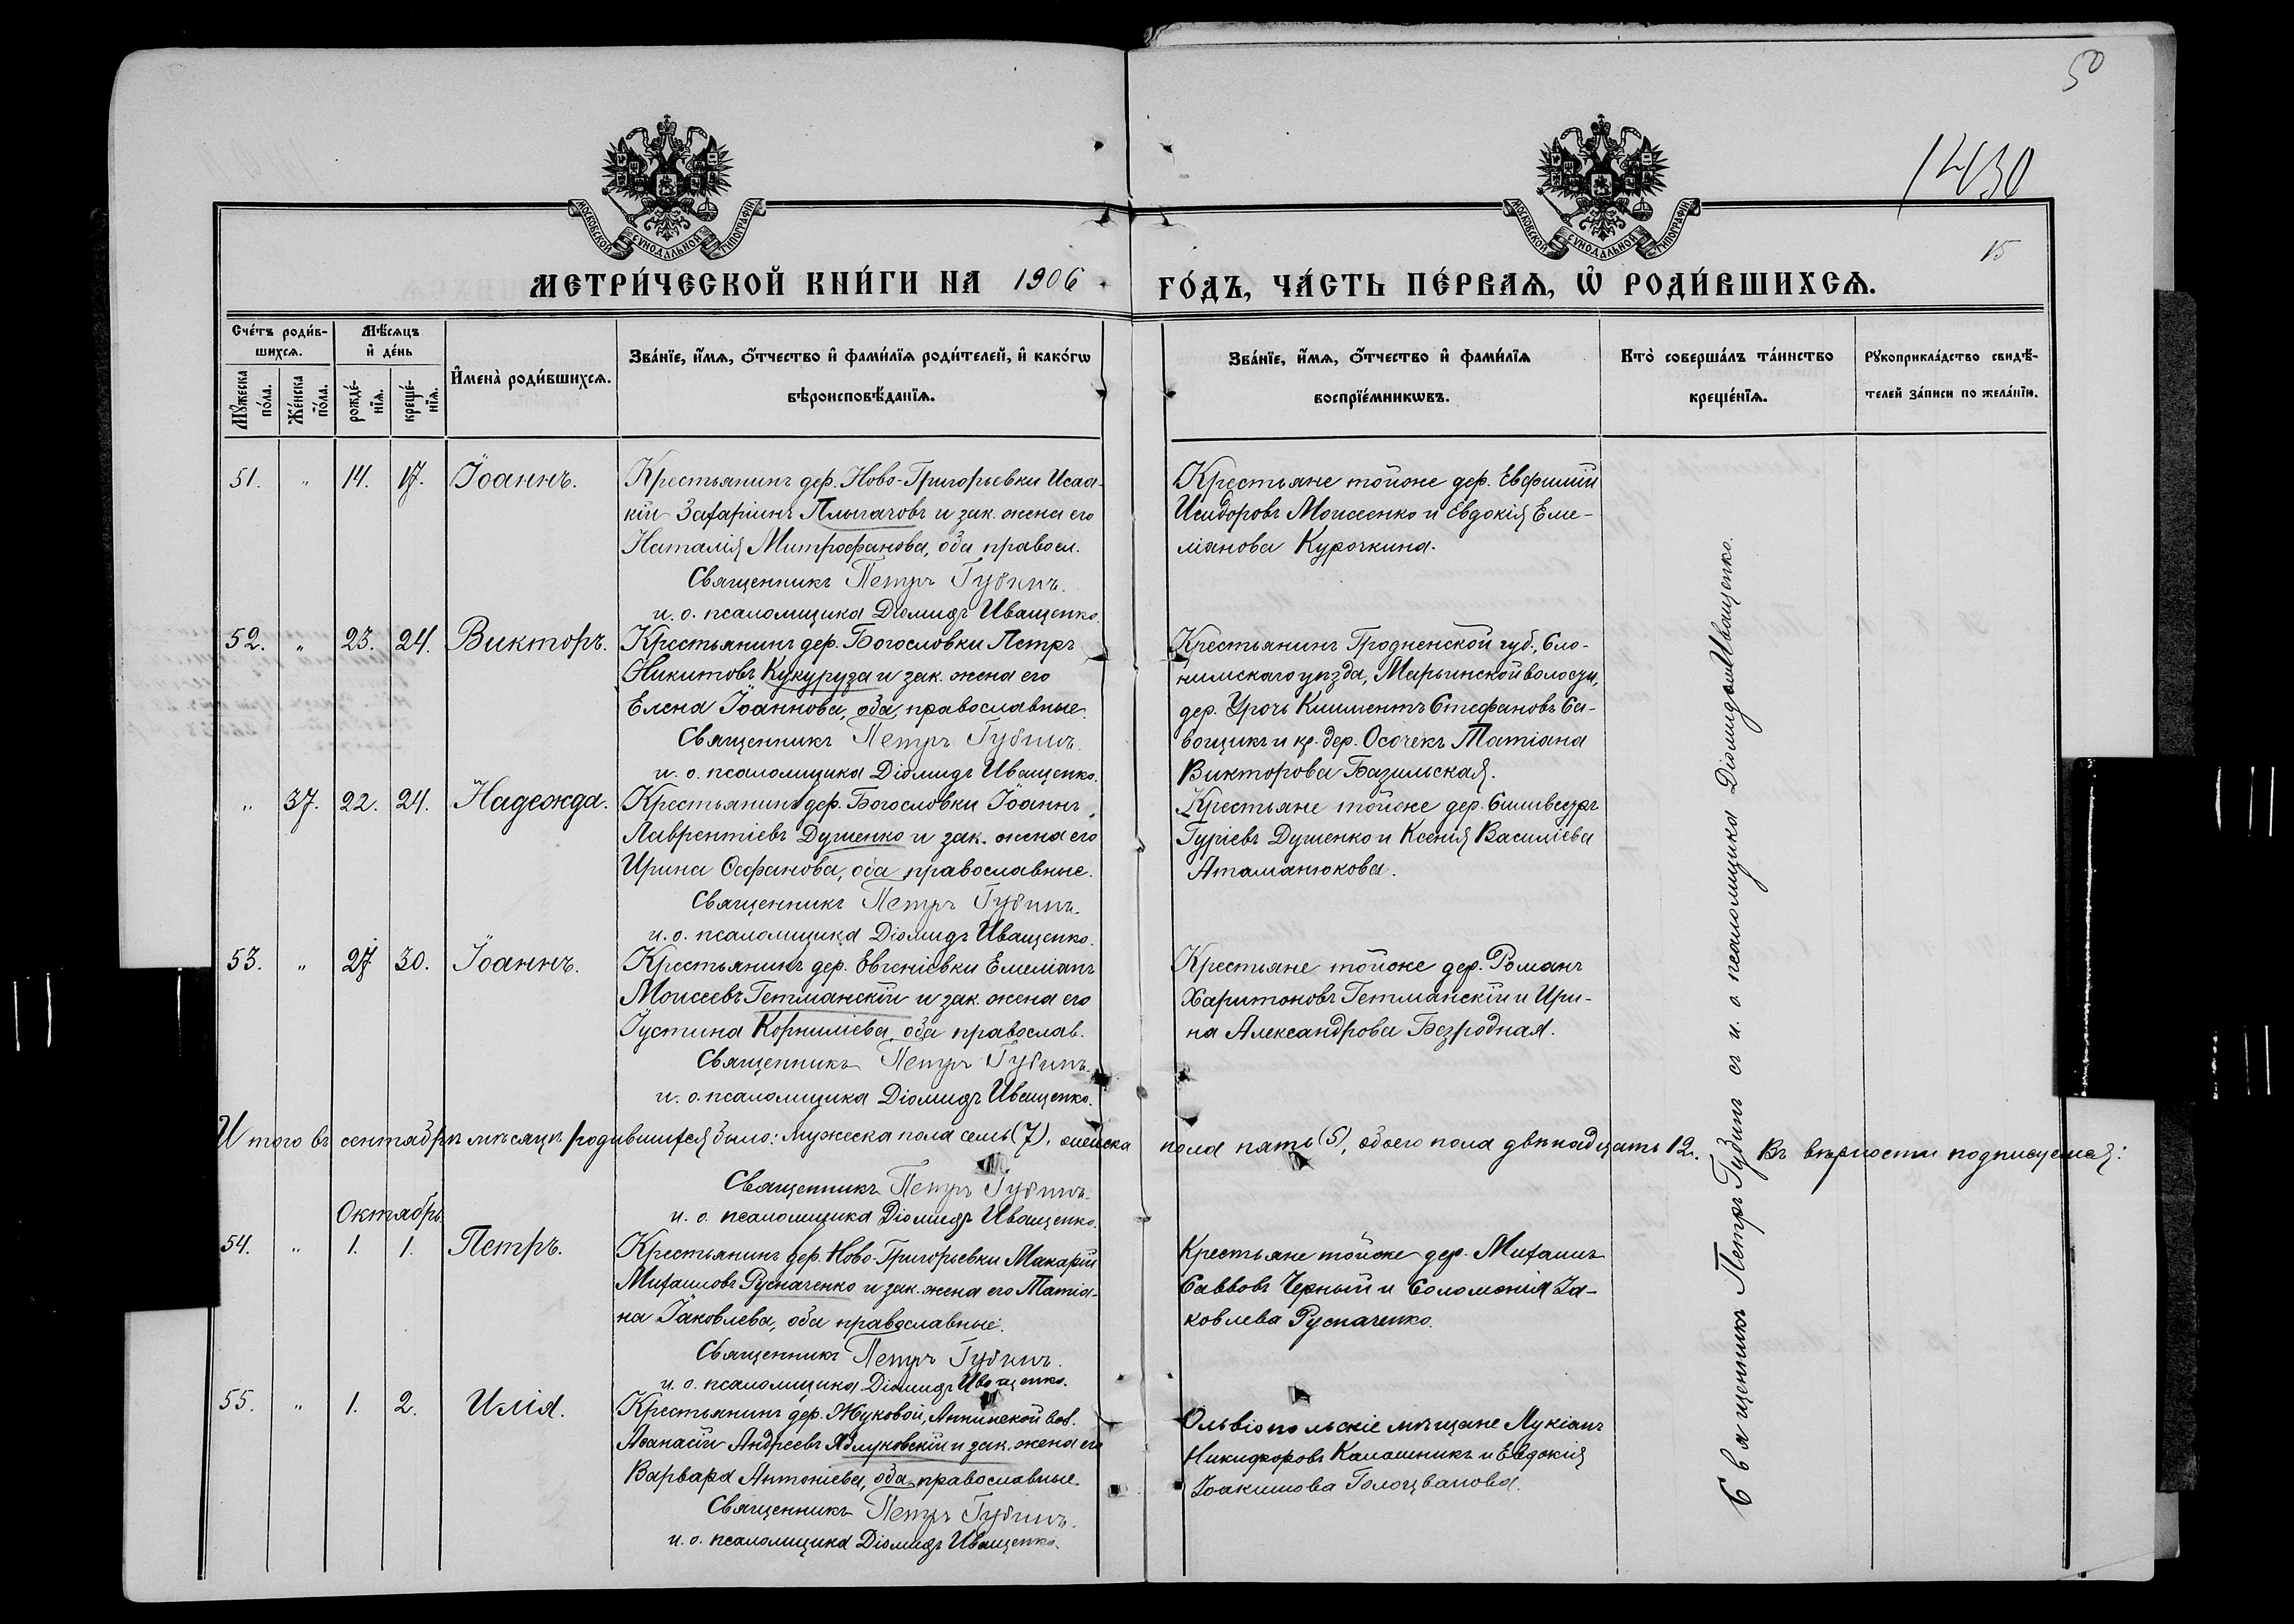 50
1430
15
МОСКОВСКОЙ СѴНОДАЛЬНОЙ ТИПОГРАФІИ
МОСКОВСКОЙ СѴНОДАЛЬНОЙ ТИПОГРАФІИ
МЕТРИ́ЧЕСКОЙ КНИ́ГИ НА 1906
ГО́ДЪ, ЧА́СТЬ ПЕ́РВАѦ, Ѡ҆ РОДИ́ВШИХСѦ.
Сче́тъ роди́в-
шихсѧ.
Мꙋ́жеска
по́ла.
Же́нска
по́ла.
Мѣ́сѧцъ
и҆ де́нь
рожде́-
нїѧ.
креще́-
нїѧ.
И҆мена̀ роди́вшихсѧ.
Зва́нїе, и҆́мѧ, ѻ҆́тчество и҆ фами́лїѧ роди́телей, и҆ како́гѡ
вѣроисповѣ́данїѧ.
Зва́нїе, и҆́мѧ, ѻ҆́тчество и҆ фами́лїѧ
воспрїе́мникѡвъ.
Кто̀ соверша́лъ та́инство
креще́нїѧ.
Рꙋкоприкла́дство свидѣ́-
телей за́писи по жела́нїю.
51. " 14. 17. Іоаннъ.
Крестьянинъ дер. Ново-Григорьевки Исаа-
кій Захаріинъ Плыгачовъ и зак. жена его
Наталія Митрофанова, оба правосл.
Священникъ Петръ Губинъ.
и. о. псаломщика Діомидъ Иващенко.
Крестьяне тойже дер. Евфимій
Исидоровъ Моисеенко и Евдокія Еме-
ліанова Курочкина.
52. " 23. 24. Викторъ.
Крестьянинъ дер. Богословки Петръ
Никитовъ Кукуруза и зак. жена его
Елена Іоаннова, оба православные.
Священникъ Петръ Губинъ.
и. о. псаломщика Діомидъ Иващенко.
Крестьянинъ Гродненской губ., Сло-
нимскаго уѣзда, Марьинской волости,
дер. Урочь Климентъ Стефановъ Са-
вощикъ и кр. дер. Осочекъ Татіана
Викторова Базильская.
" 37. 22. 24. Надежда.
Крестьянинъ дер. Богословки Іоаннъ
Лаврентіевъ Душенко и зак. жена его
Ирина Стефанова, оба православные.
Священникъ Петръ Губинъ.
и. о. псаломщика Діомидъ Иващенко.
Крестьяне тойже дер. Сильвестръ
Гуріевъ Душенко и Ксенія Василіева
Атаманюкова.
53. " 27 30. Іоаннъ.
Крестьянинъ дер. Евгеніевки Емеліанъ
Моисеевъ Гетманскій и зак. жена его
Іустина Корниліева, оба православ.
Священникъ Петръ Губинъ.
и. о. псаломщика Діомидъ Иващенко.
Крестьяне тойже дер. Романъ
Харитоновъ Гетманскій и Ири-
на Александрова Безродная.
И того въ сентябрѣ мѣсяцѣ родившихся было: мужеска пола семь (7), женска пола пять (5), обоего пола двѣнадцать 12. Въ вѣрности подписуемся:
Священникъ Петръ Губинъ.
и. о. псаломщика Діомидъ Иващенко.
Октябрь
54. " 1. 1. Петръ.
Крестьянинъ дер. Ново-Григорьевки Макарій
Михаиловъ Русначенко и зак. жена его Татіа-
на Іаковлева, оба православные.
Священникъ Петръ Губинъ.
и. о. псаломщика Діомидъ Иващенко.
Крестьяне тойже дер. Михаилъ
Саввовъ Черный и Соломонія Іа-
ковлева Русначенко.
55. " 1. 2. Илія.
Крестьянинъ дер. Жуковой, Аннинской вол.
Аѳанасій Андреевъ Яблуковскій и зак. жена его
Варвара Антоніева, оба православные.
Священникъ Петръ Губинъ.
и. о. псаломщика Діомидъ Иващенко.
Ольвіопольскіе мѣщане Лукіанъ
Никифоровъ Калашникъ и Евдокія
Іоакимова Голоцванова.
Священникъ Петръ Губинъ съ и. о. псаломщика Діомидомъ Иващенко.